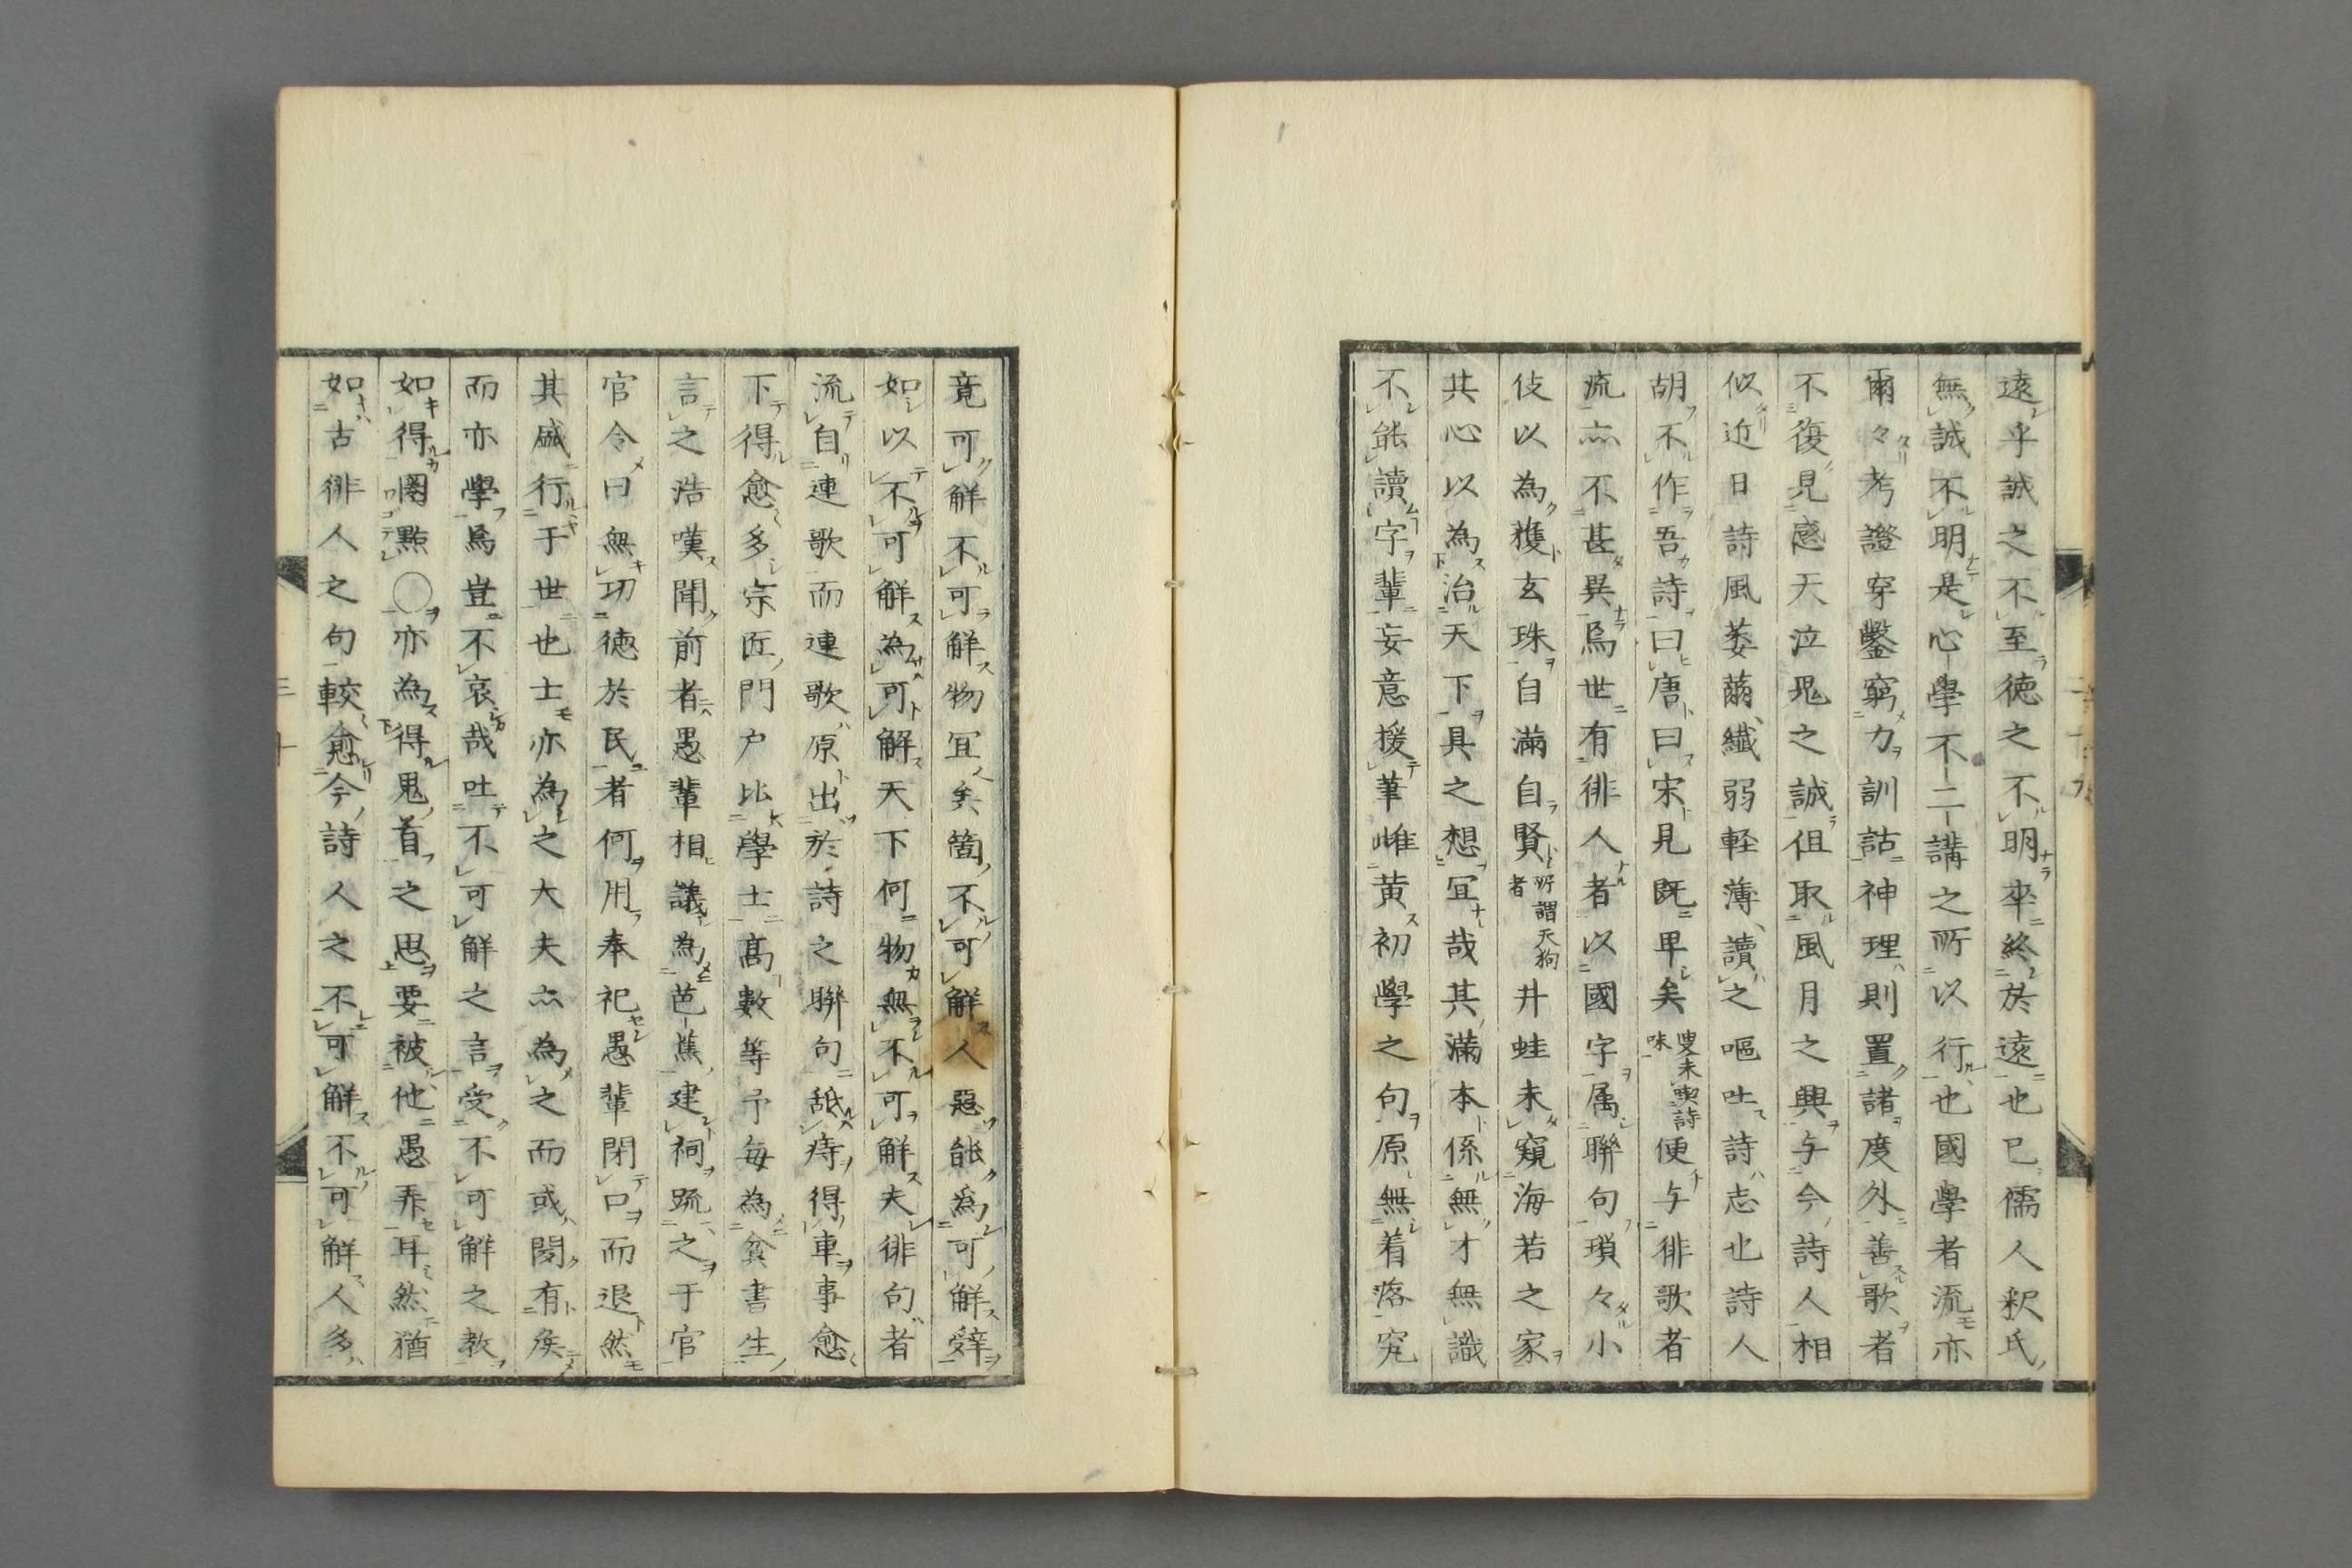 遠乎誠之不至徳之不明卒終於遠也已儒人釈氏
無誠不明是心學不二講之所以行也國學者流亦
爾々考證穿鑿窮力訓詁神理則置諸度外善歌者
不復見感天泣鬼之誠但取風月之興与今詩人相
似近日詩風萎薾纎弱軽薄讀之嘔吐詩志也詩人
胡不作吾詩曰唐曰宋見既卑矣叟未喫詩味便与徘歌者
流亦不甚異焉世有徘人者以國字属聯句瑣々小
伎以為獲玄珠自滿自賢所謂天狗者井蛙未窺海若之家
其心以為治天下具之想冝哉其滿本係無才無識
不能讀字輩妄意援筆雌黄初學之句原無着落究
竟可解不可解物冝矣箇不可解人惡能為可解辤
如以不可解為可解天下何物無不可解夫徘句者
流自連歌而連歌原出於詩之聯句舐痔得車事愈
下得愈多宗匠門戸比學士高數等予毎為貧書生
言之浩嘆聞前者愚輩相議為芭蕉建祠疏之于官
官令曰無功徳於民者何用奉祀愚輩閉口而退然
其盛行于世也士亦為之大夫亦為之而或聞有矦
而亦學焉豈不哀哉吐不可解之言受不可解之教
如得圏點〇亦為得鬼首之思要被他愚弄耳然猶
如古徘人之句較愈今詩人之不可解不可解人多
三十